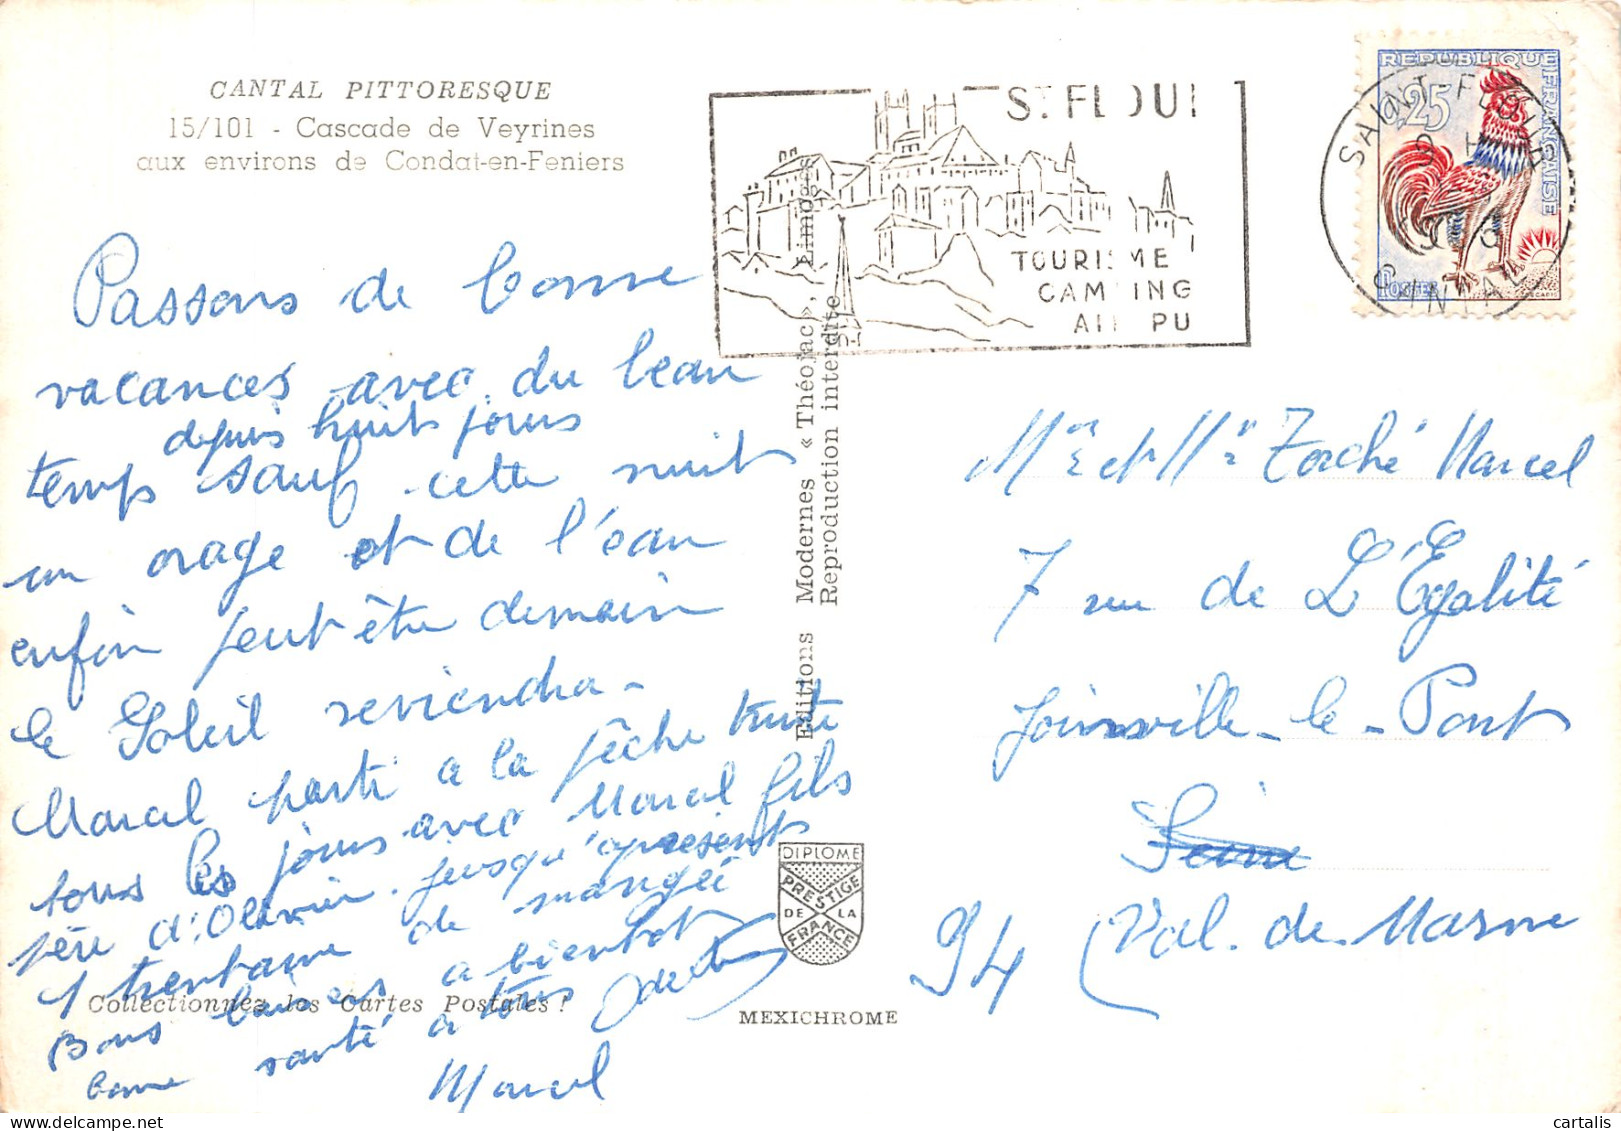 CANTAL PITTORESQUE
15/101 - Cascade de Veyrines
aux environs de Condat-en-Feniers
Passons de bonne
vacances avec du beau
depuis huit jours
temps sauf cette nuit
un orage et de l'eau
enfin peut être demain
le Soleil reviendra -
Marcel parti a la pêche truite
tous les jours avec Marcel fils
père d'Olivier. jusqu'a présent
1 trentaine de mangée
Bons baisers a bientot
bonne santé a tous Odette
Marcel
Collectionnez les Cartes Postales !
Editions Modernes « Théojac », Limoges
Reproduction interdite
DIPLOME
PRESTIGE
DE LA
FRANCE
MEXICHROME
ST FLOUR
TOURISME
CAMPING
AIR PU
REPUBLIQUE FRANÇAISE
0,25
POSTES
SAINT FLOUR
CANTAL
Mr et Mme Torché Marcel
7 rue de L'Egalité
Joinville-le-Pont
Seine
94 (Val-de-Marne
cartalis
delcampe.net